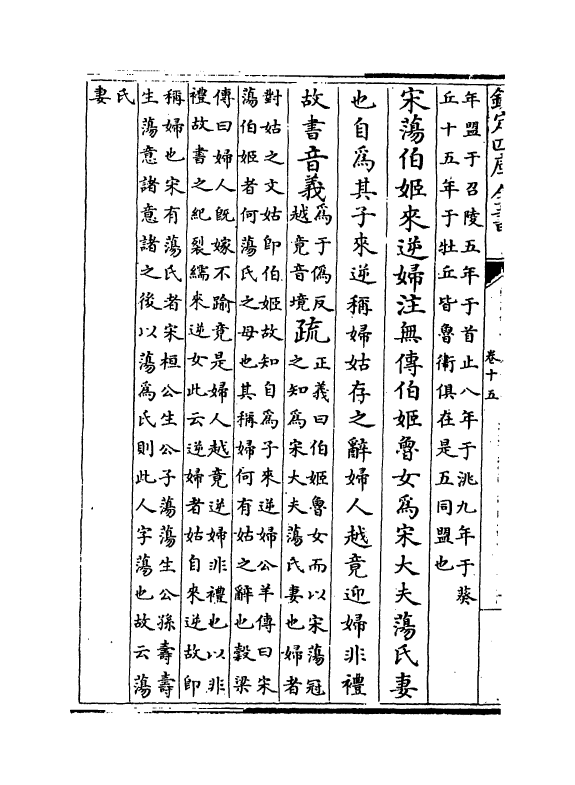 欽定四庫全書
卷十五
年盟于召陵五年于首止八年于洮九年于葵
丘十五年于牡丘皆魯衛俱在是五同盟也
宋蕩伯姬來逆婦注無傳伯姬魯女爲宋大夫蕩氏妻
也自爲其子來逆稱婦姑存之辭婦人越竟迎婦非禮
故書音義
爲于僞反
越竟音境
疏
正義曰伯姬魯女而以宋蕩冠
之知爲宋大夫蕩氏妻也婦者
對姑之文姑即伯姬故知自爲子來逆婦公羊傳曰宋
蕩伯姬者何蕩氏之母也其稱婦何有姑之辭也穀梁
傳曰婦人旣嫁不踰竟是婦人越竟逆婦非禮也以非
禮故書之紀裂繻來逆女此云逆婦者姑自來逆故即
稱婦也宋有蕩氏者宋桓公生公子蕩蕩生公孫壽壽
生蕩意諸意諸之後以蕩爲氏則此人字蕩也故云蕩
氏
妻